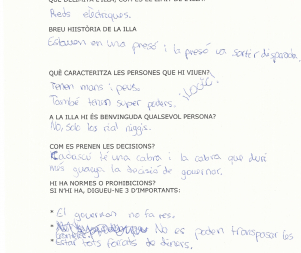 QUÈ DELIMITA L'ILLA, COM ÉS EL LÍMIT DE L'ILLA?
Reds elèctriques.
BREU HISTÒRIA DE LA ILLA
Estaven en una presó i la presó va sortir disparada.
QUÈ CARACTERITZA LES PERSONES QUE HI VIUEN?
Tenen mans i peus.
També tenen super poders.
A LA ILLA HI ÉS BENVINGUDA QUALSEVOL PERSONA?
No, sols los
COM ES PRENEN LES DECISIONS?
té una cabra i la cabra que duri
més guanya la decisió de governar.
HI HA NORMES O PROHIBICIONS?
SI N'HI HA, DIGUEU-NE 3 D'IMPORTANTS:
* El governar no fa res.
* No es poden transposar les
* Estar tots forrats de diners.